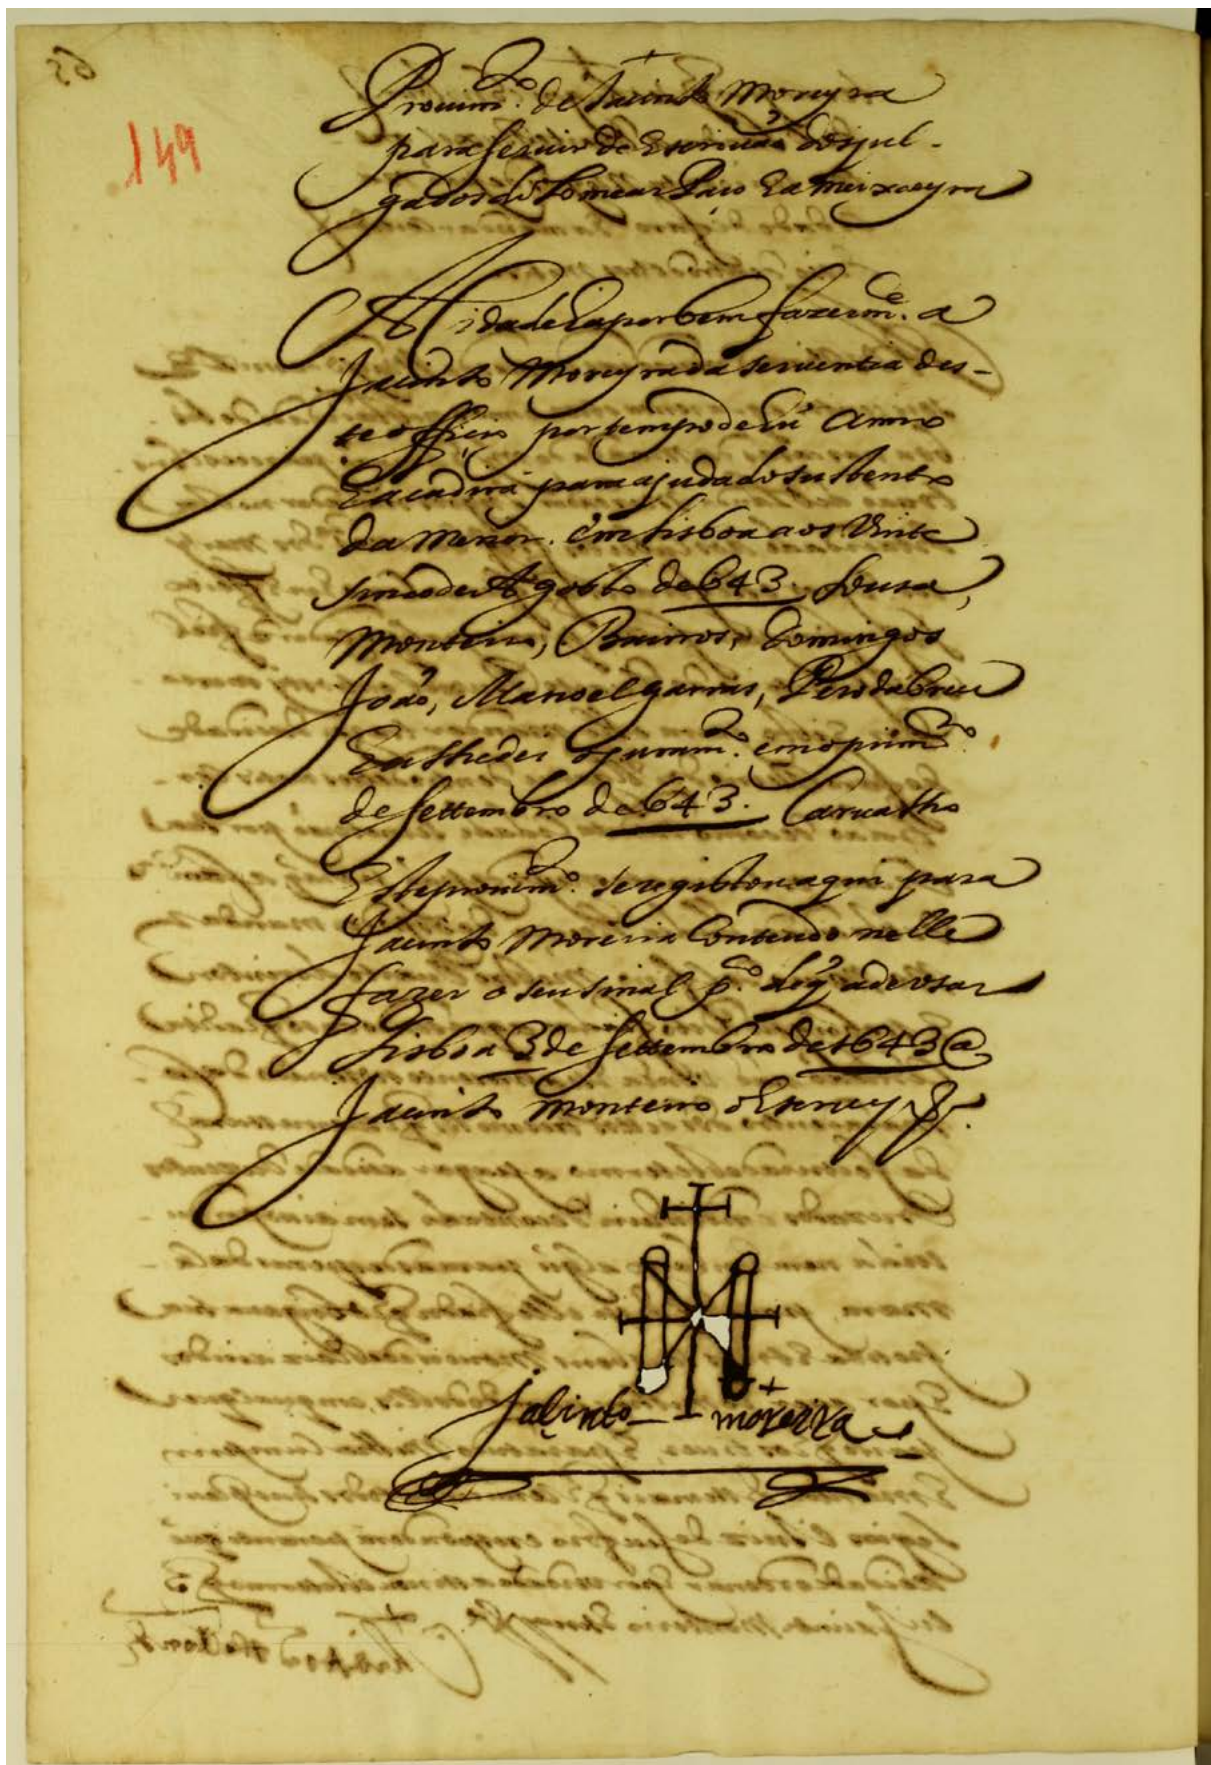 149
Prouim.to de Jacinto Moreyra
para seruir de escriuaõ dos jul-
gados do Lomear Paio e ameixoeyra
A cidade ha por bem fazer m.e a
Jacinto Moreyra da seruentia des-
te officio por tempo de hũ Anno
para ajuda do sustento
da menor. em Lisboa aos Vinte
sinco de Agosto de 643. Sousa,
Monteiro, Barros, Domingos
Joaõ, Manoel garcias, Pero dabreu
E a lhe dei o juram.to em o prim.ro
de settembro de 643. Carualho
Este prouim.to se registou aqui para
Jacinto Moreira Contendo nelle
fazer o seu sinal p.co de q̃ a de vsar
Lisboa 3 de settembro de 1643 @
Jacinto monteiro o escreuy
jacinto moreira